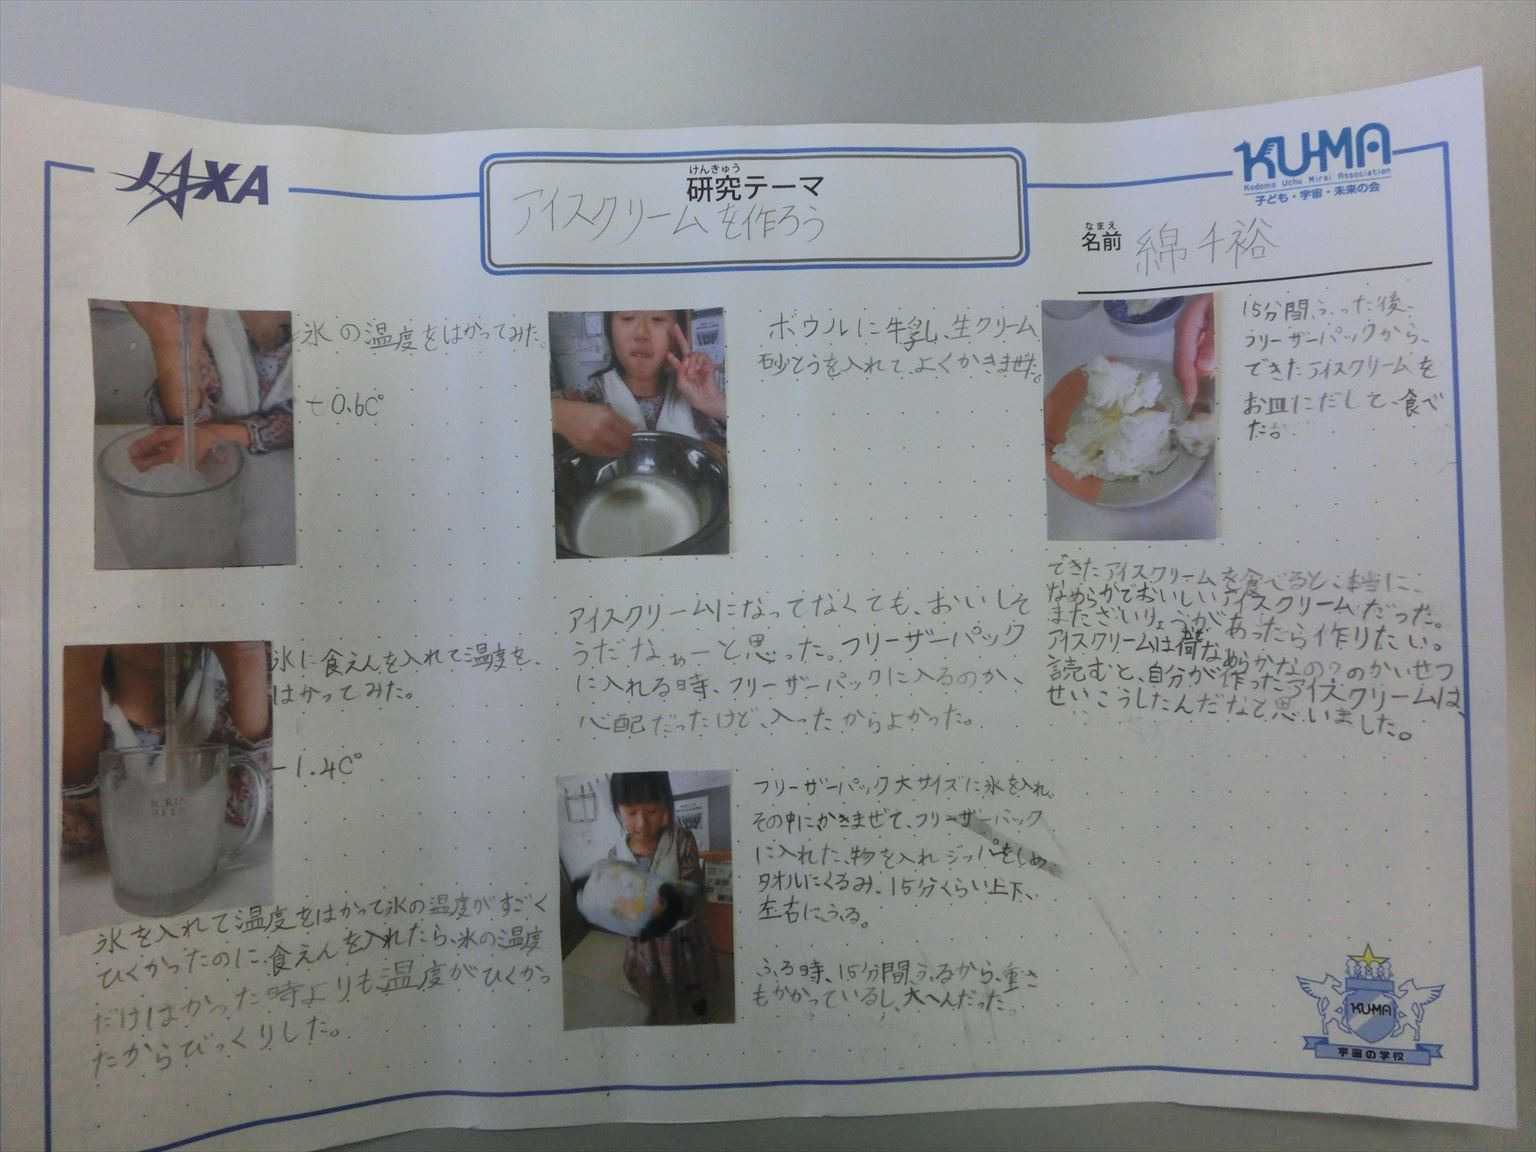 JAXA
けんきゅう
研究テーマ
アイスクリームを作ろう
KU-MA
Kodomo Uchu Mirai Association
子ども・宇宙・未来の会
なまえ
名前
綿 千裕
氷の温度をはかってみた。
+0.6C°
氷に食えんを入れて温度を、
はかってみた。
-1.4C°
KIRIN
BEER
氷を入れて温度をはかって氷の温度がすごく
ひくかったのに、食えんを入れたら、氷の温度
だけはかった時よりも温度がひくかっ
たからびっくりした。
ボウルに牛乳、生クリーム
砂とうを入れて、よくかきまぜた。
アイスクリームになってなくても、おいしそ
うだなぁーと思った。フリーザーパック
に入れる時、フリーザーパックに入るのか、
心配だったけど、入ったからよかった。
フリーザーパック大サイズに氷を入れ、
その中にかきまぜて、フリーザーパック
に入れた、物を入れジッパをしめ、
タオルにくるみ、15分くらい上下、
左右にふる。
ふる時、15分間ふるから、重さ
もかかっているし、大へんだった。
15分間、ふった後、
フリーザーパックから、
できたアイスクリームを
お皿にだして、食べ
た。
できたアイスクリームを食べると、本当に、
なめらかでおいしいアイスクリームだった。
またざいりょうがあったら作りたい。
アイスクリームは何なめらかなの？のかいせつ
読むと、自分が作ったアイスクリームは、
せいこうしたんだなと思いました。
KU-MA
宇宙の学校